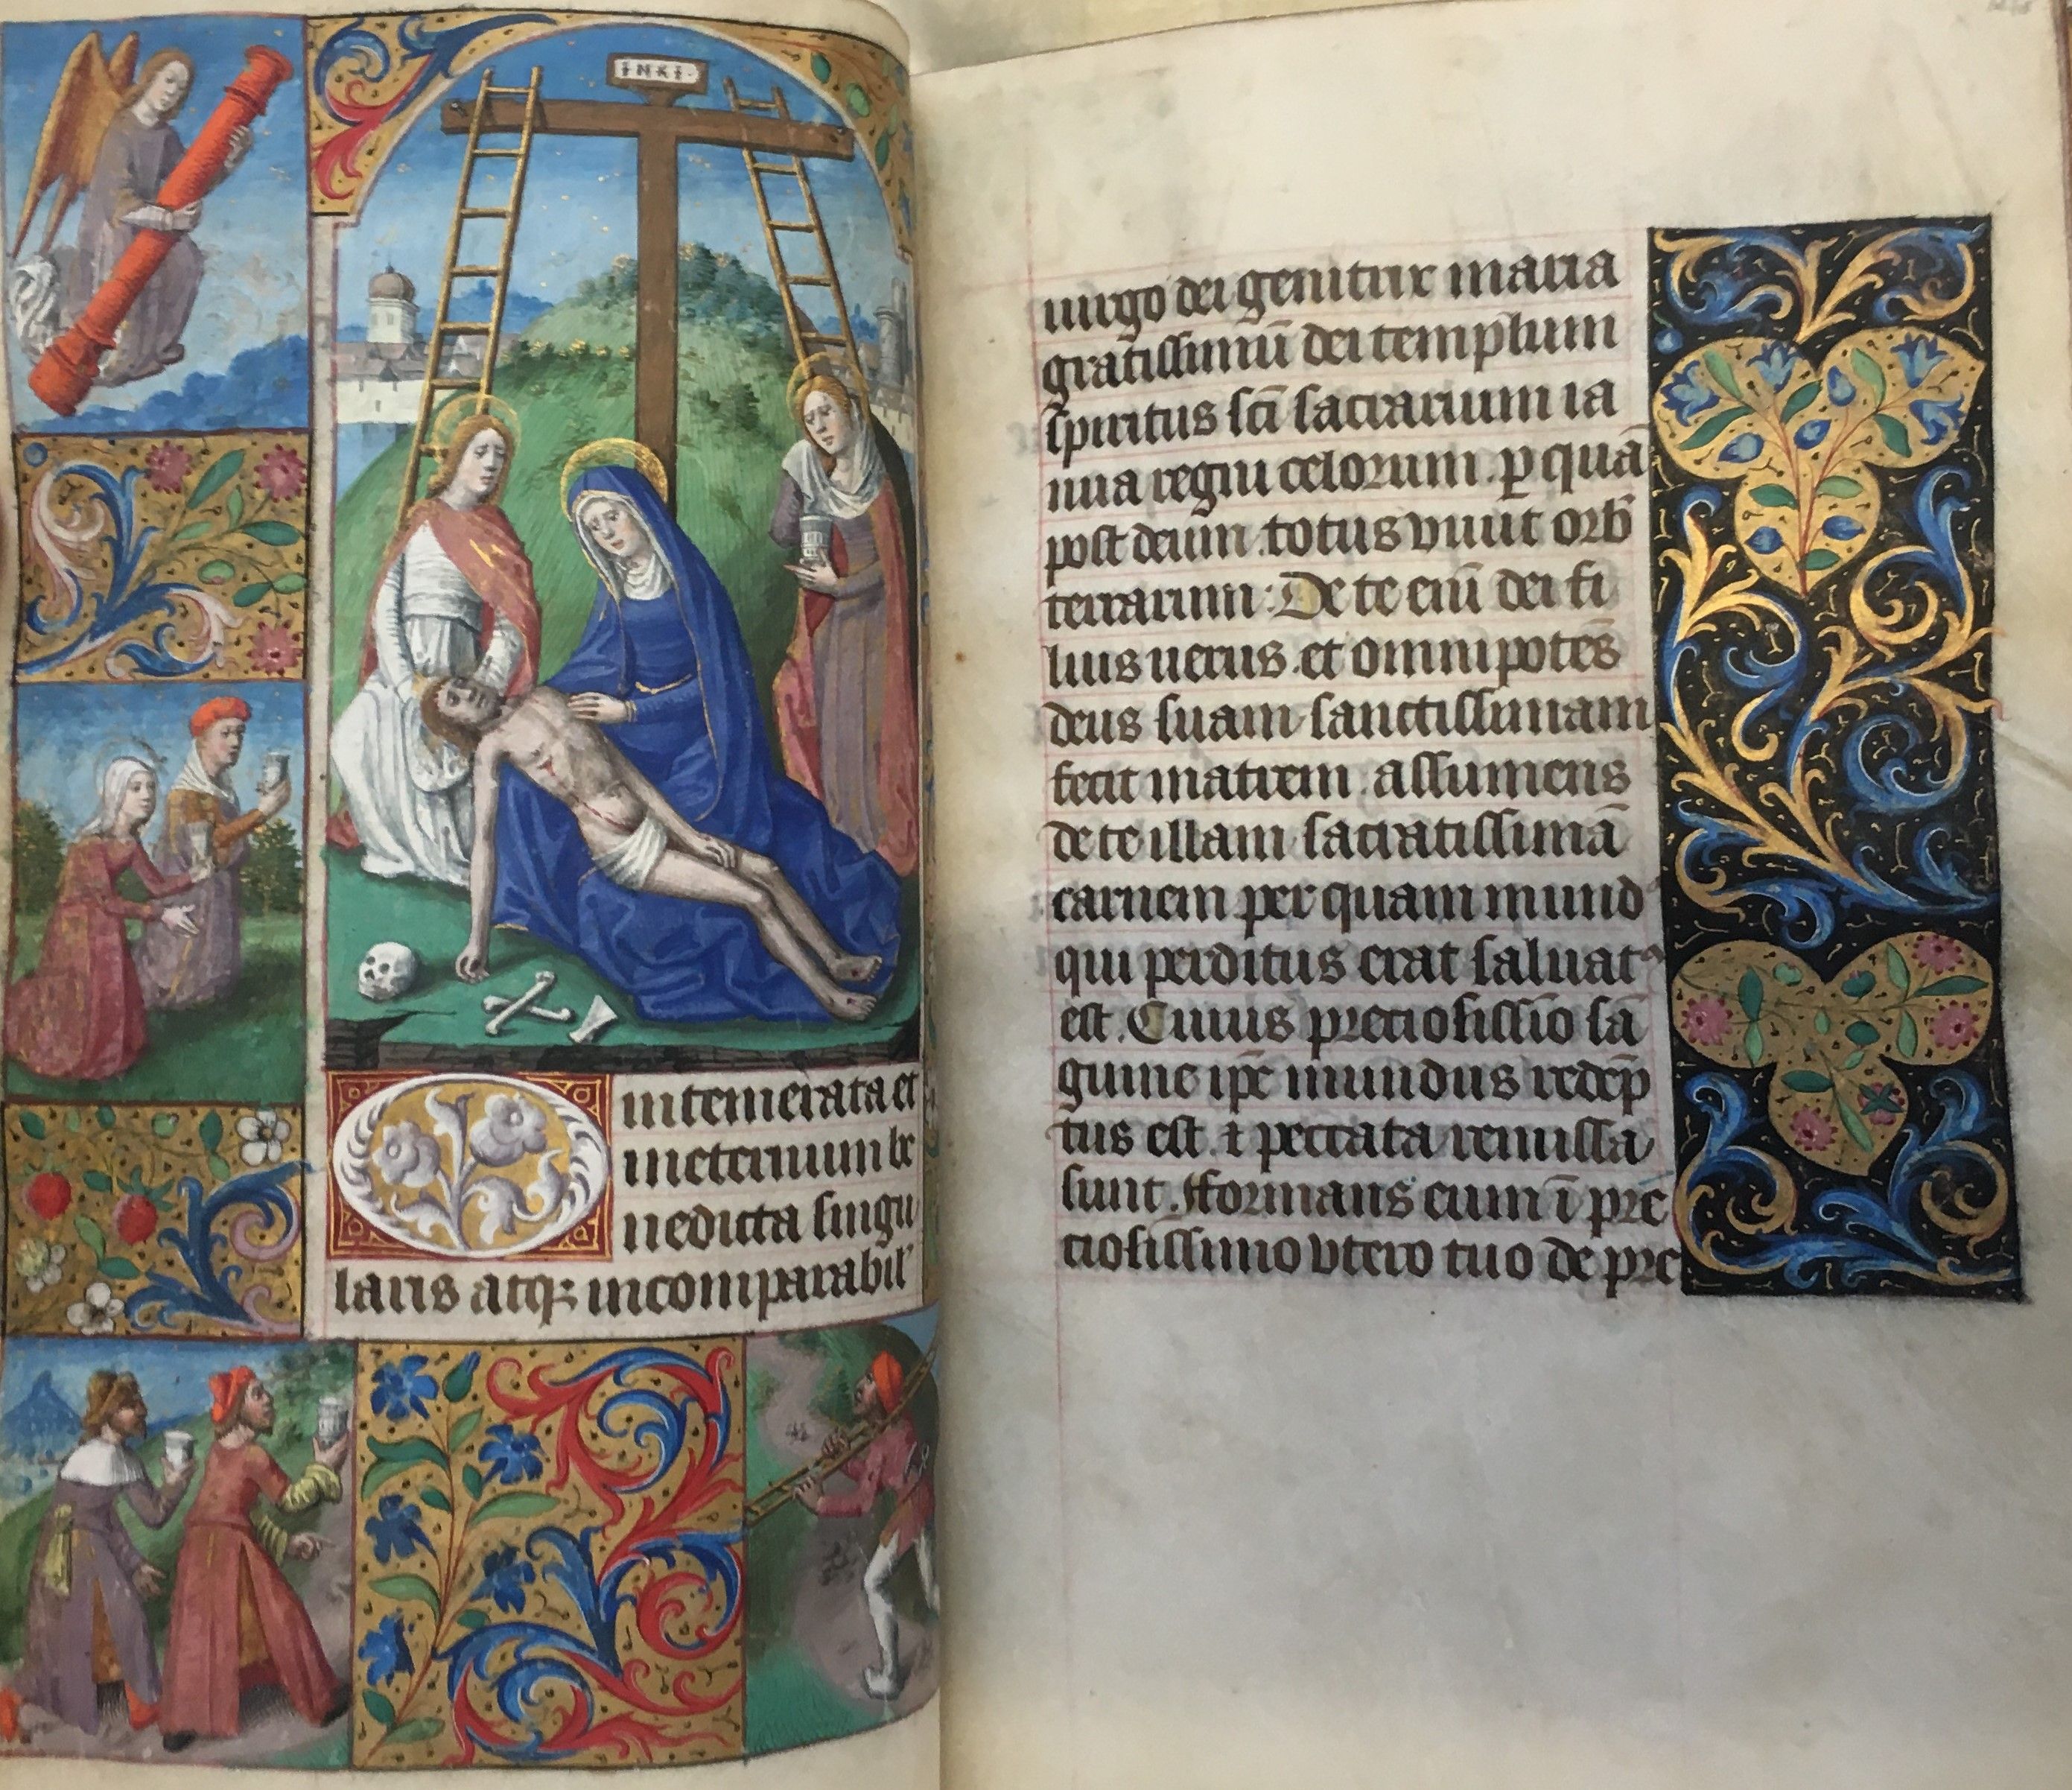 INRI
intemerata et
ineternum be
nedicta singu
laris atq; incomparabil'
uirgo dei genitrix maria
gratissimū dei templum
spiritus sc̄i sacrarium ia
nua regni celorum. ꝑ quā
post deum. totus viuit orb̄
terrarum: De te eni̅ dei fi
lius uerus. et omnipotēs
deus suam sanctissimam
fecit matrem. assumens
de te illam sacratissimā
carnem per quam mundꝰ
qui perditus erat saluatꝰ
est. Cuius preciosissi̅o sā
guine ip̄e mundus redēp
tus est. ⁊ peccata remissa
sunt. Fformans eum ī pre
ciosissimo vtero tuo de pre